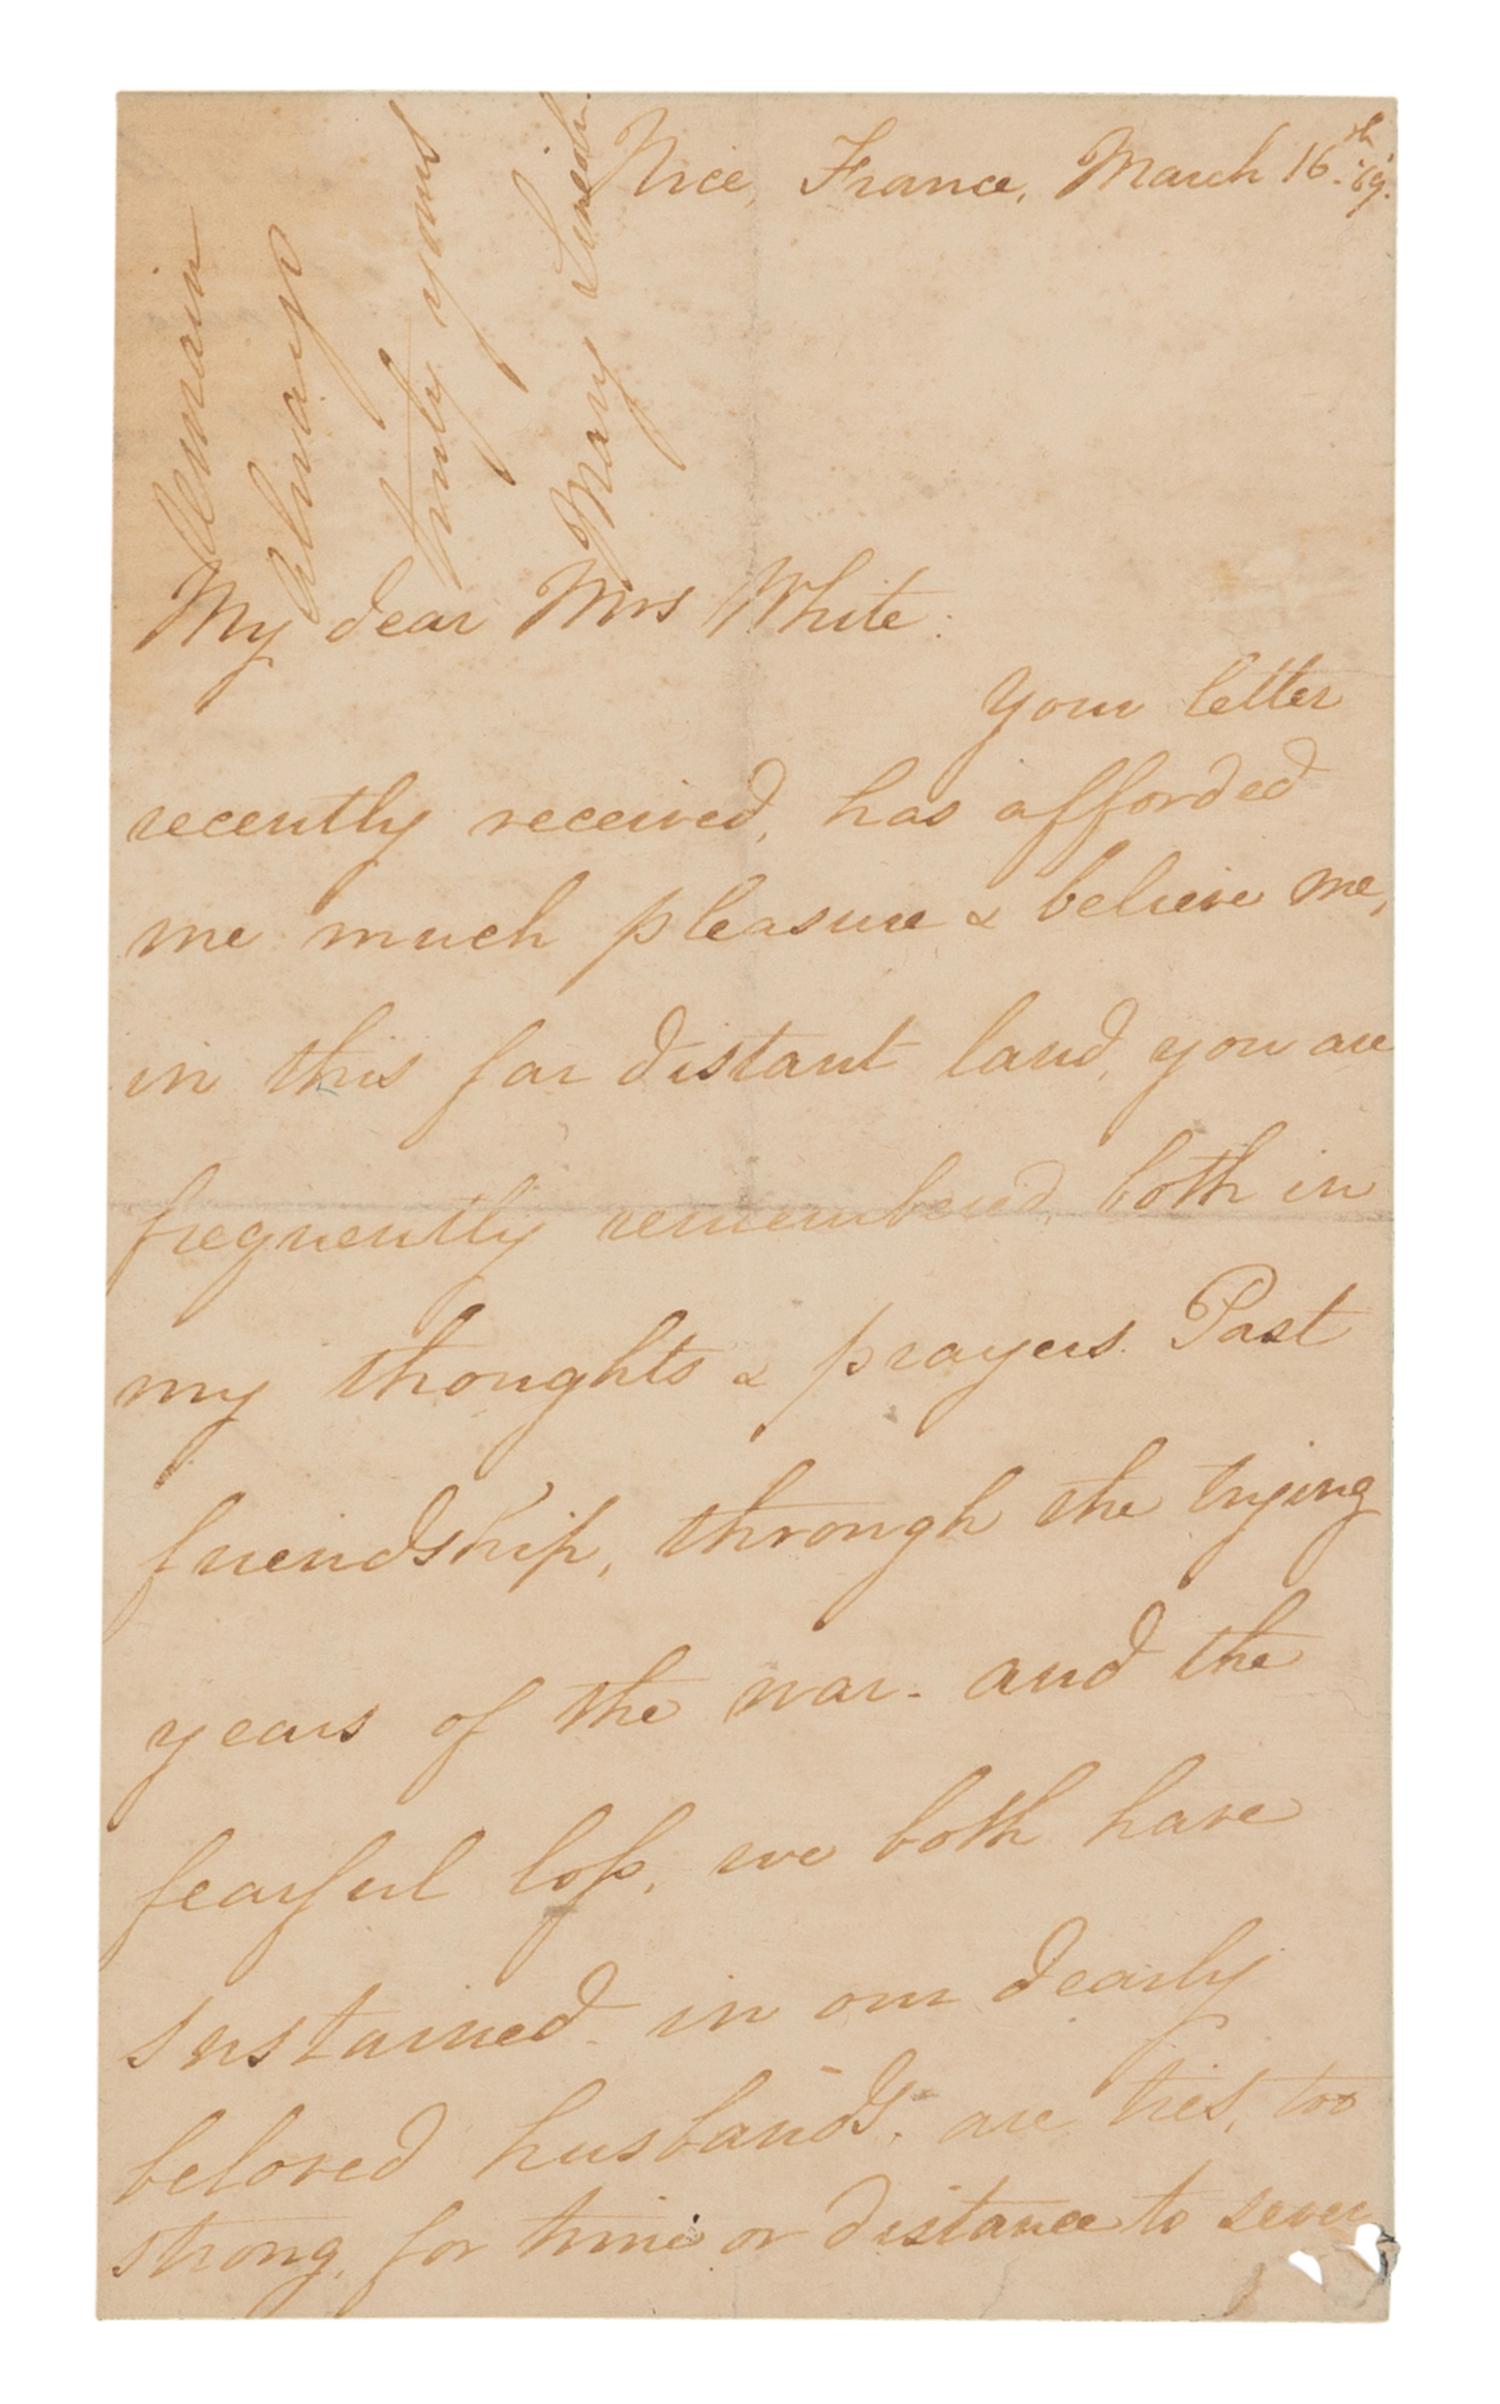 Nice, France, March 16th '69.
My dear Mrs White:
Your letter
recently received, has afforded
me much pleasure & believe me,
in this far distant land, you are
frequently remembered, both in
my thoughts & prayers. Past
friendship, through the trying
years of the war - and the
fearful loss, we both have
sustained - in our dearly
beloved husbands, are ties, too
strong, for time or distance to sever
Remain
always
truly yours
Mary Lincoln